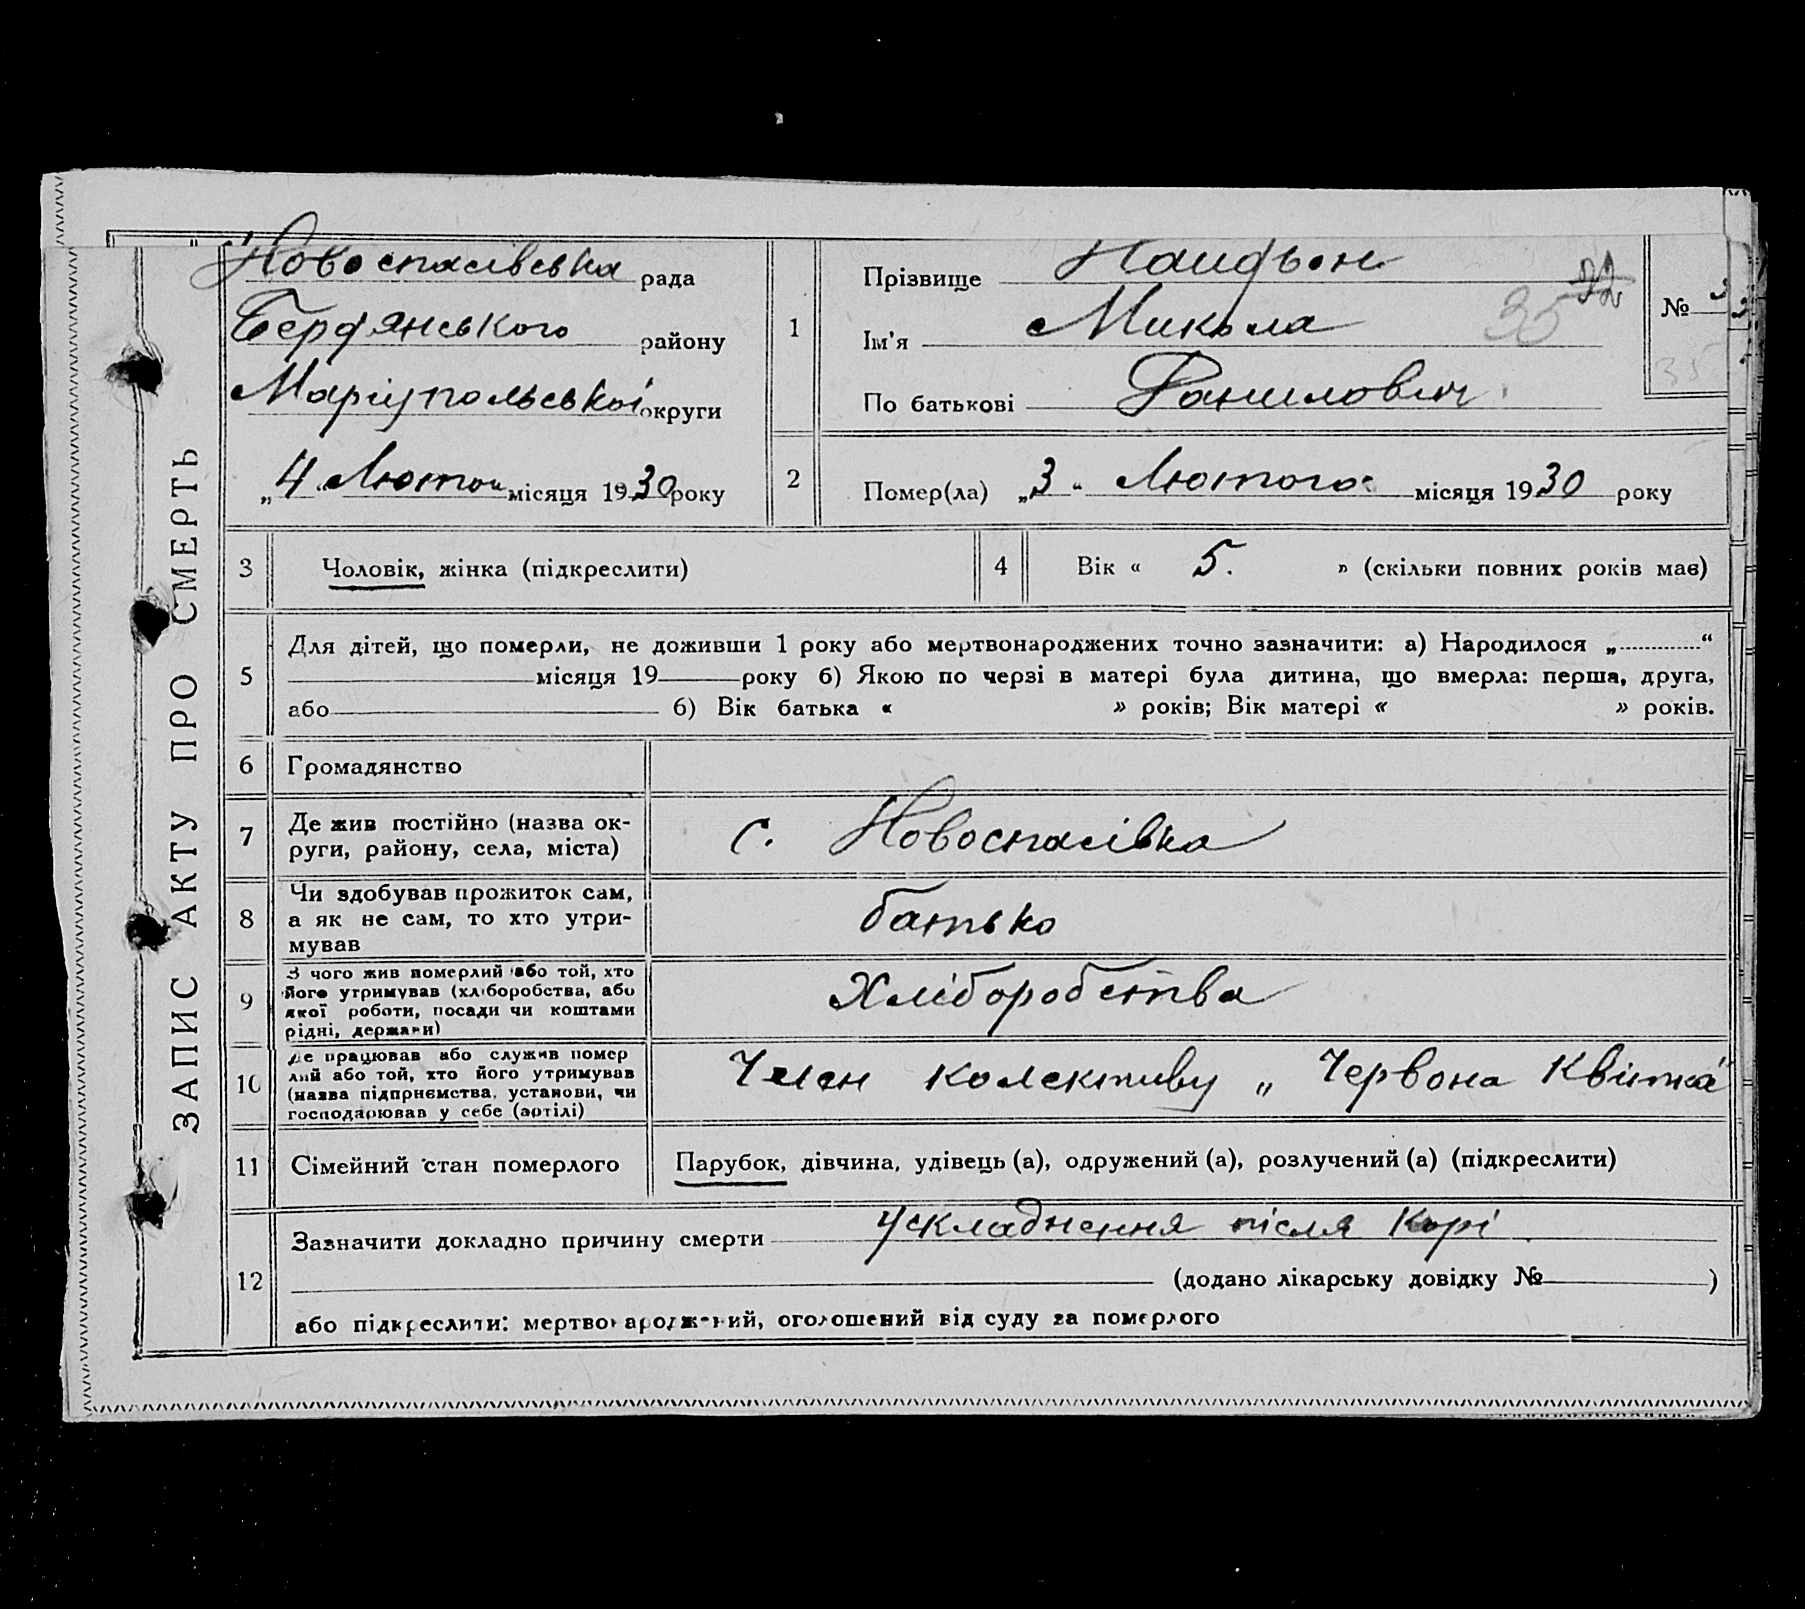 ЗАПИС АКТУ ПРО СМЕРТЬ
Новоспасівська рада
Бердянського району
Маріупольської округи
„4 Лютого місяця 1930 року
1
Прізвище Найдьон
Ім'я Микола
По батькові Данилович
35
№ 3
35
2
Помер(ла) „3" Лютого місяця 1930 року
3 Чоловік, жінка (підкреслити)
4 Вік « 5. » (скільки повних років має)
5
Для дітей, що померли, не доживши 1 року або мертвонароджених точно зазначити: а) Народилося „ “
місяця 19 року б) Якою по черзі в матері була дитина, що вмерла: перша, друга,
або б) Вік батька « » років; Вік матері « » років.
6 Громадянство
7
Де жив постійно (назва ок-
руги, району, села, міста)
с. Новоспасівка
8
Чи здобував прожиток сам,
а як не сам, то хто утри-
мував
батько
9
З чого жив померлий або той, хто
його утримував (хліборобства, або
якої роботи, посади чи коштами
рідні, держави)
Хліборобства
10
Де працював або служив помер
лий або той, хто його утримував
(назва підприємства, установи, чи
господарював у себе (артілі)
Член колективу „Червона Квітка"
11 Сімейний стан померлого
Парубок, дівчина, удівець (а), одружений (а), розлучений (а) (підкреслити)
12
Зазначити докладно причину смерти Ускладнення після Корі.
(додано лікарську довідку № )
або підкреслити: мертвонароджений, оголошений від суду за померлого